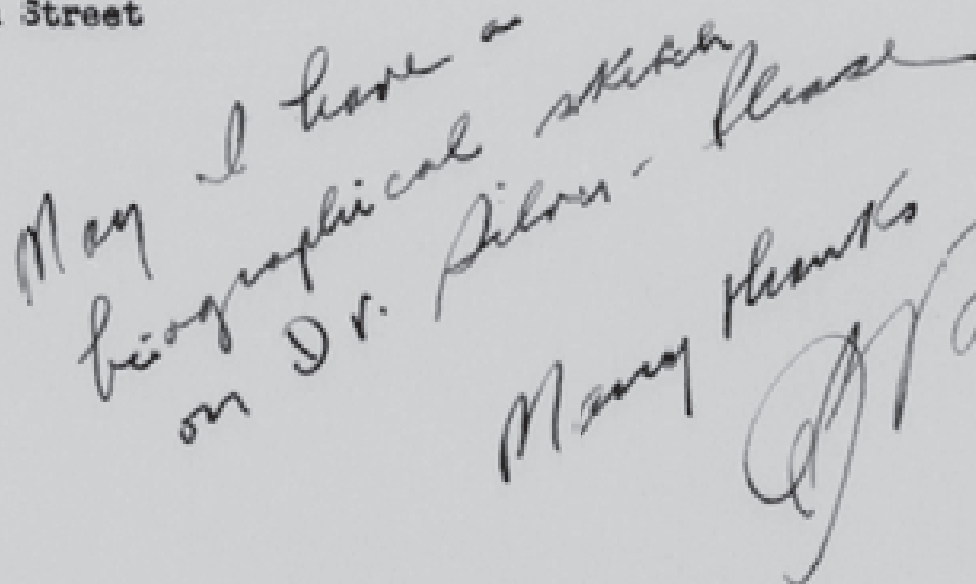 Street
May I have a
biographical sketch
on Dr. Silver - Please
Many thanks